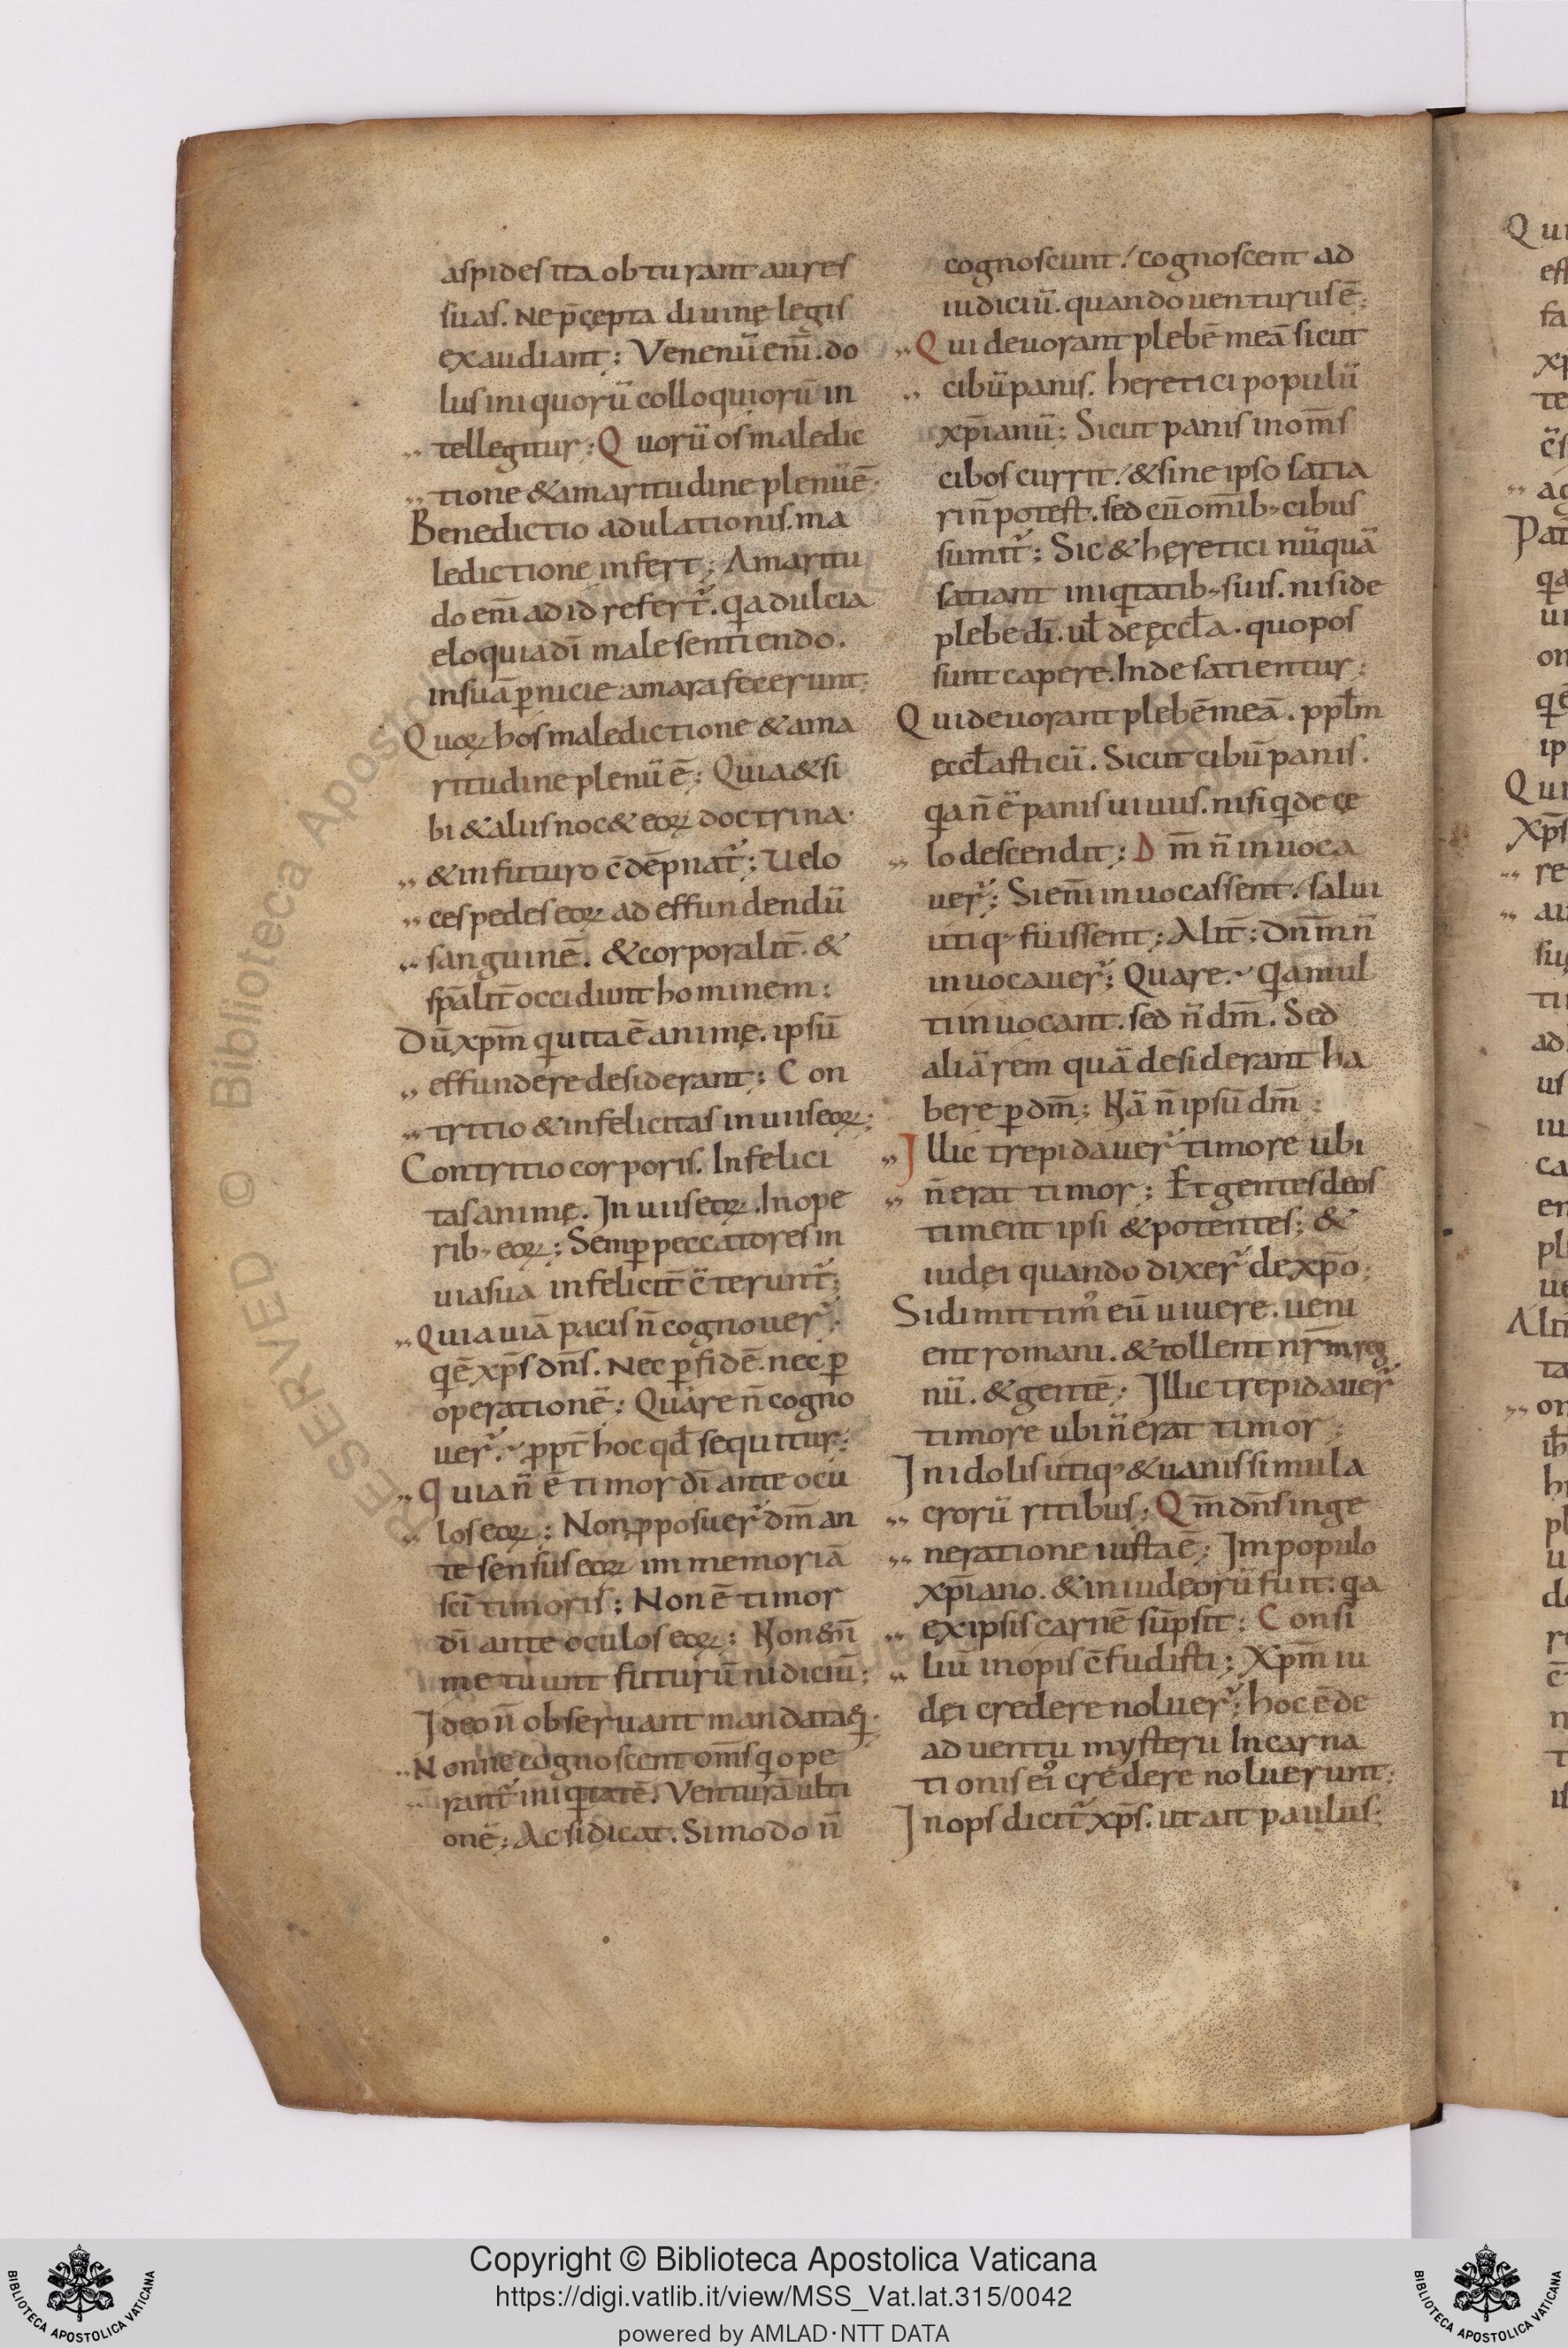 aspides ita obturant aures
suas. Ne p̄cepta diuinę legis
exaudiant; Venenū enī. do
lus iniquorū colloquiorū in
tellegitur; Quorū os maledic
tione & amaritudine plenū ē.
Benedictio adulationis. ma
ledictione infert; Amaritu
do enī ad id refert̄. qa dulcia
eloquia dī male sentiendo.
in suā ꝑnicie amara fecerunt;
Quoꝝ hos maledictione & ama
ritudine plenū ē; Quia & si
bi & aliis noc& eoꝝ doctrina.
& in futuro c̄dēpnat̄; Uelo
ces pedes eoꝝ ad effundendū
sanguinē. & corporalit̄. &
sp̄alit̄ occidunt hominem;
Dū xp̄m qui uita ē animę. ipsū
effundere desiderant; Con
tritio & infelicitas in uiis eoꝝ;
Contritio corporis. Infelici
tas animę. In uiis eoꝝ. In ope
rib; eoꝝ; Semꝑ peccatores in
uia sua infelicit̄ c̄terunt̄;
Quia uiā pacis n̄ cognouer̄.
qē xp̄s dn̄s. Nec ꝑ fidē. nec ꝑ
operationē; Quare n̄ cogno
uer̄. ꝓpt̄ hoc qd̄ sequitur;
Quia n̄ ē timor dī ante ocu
los eoꝝ; Non ꝓposuer̄ dm̄ an
te sensus eoꝝ im memoriā
sc̄i timoris; Non ē timor
dī ante oculos eoꝝ; Non eni
metuunt futurū iudiciū;
Ideo n̄ obseruant mandata ei.
Nonne cognoscent om̄s q ope
rant̄ iniqtatē. Venturā ulti
onē; Ac si dicat. Si modo n̄
cognoscunt! cognoscent ad
iudiciū. quando uenturus ē;
Qui deuorant plebē meā sicut
cibū panis. heretici populū
xp̄ianū; Sicut panis in om̄s
cibos currit! & sine ipso satia
ri n̄ potest. sed cū om̄ib; cibus
sumit̄; Sic & hęretici nūquā
satiant iniqtatib; suis. nisi de
plebe dī. ul̄ de ęccl̄a. quo pos
sunt capere. Inde satientur;
Qui deuorant plebē meā. ppl̄m
ęccl̄asticū. Sicut cibū panis.
qa n̄ ē panis uiuus. nisi q de cę
lo descendit; Dm̄ n̄ inuoca
uer̄; Si enī inuocassent. salui
utiq; fuissent; Alit̄; Dn̄m n̄
inuocauer̄; Quare. Qa mul
ti inuocant. sed n̄ dm̄. Sed
aliā rem quā desiderant ha
bere ꝑ dm̄; Nā n̄ ipsū dm̄;
Illic trepidauer̄ timore ubi
n̄ erat timor; Et gentes deos
timent ipsi & potentes; &
iudęi quando dixer̄ de xp̄o;
Si dimittim᷒ eū uiuere. ueni
ent romani. & tollent nr̄m reg
nū. & gentē; Illic trepidauer̄
timore ubi n̄ erat timor;
In idolis utiq; & uanis simula
crorū ritibus; Qm̄ dn̄s in ge
neratione iusta ē; Im populo
xp̄iano. & in iudęorū fuit. qa
ex ipsis carnē sūpsit; Consi
liū inopis c̄fudisti; Xp̄m iu
dęi credere noluer̄; hoc ē de
aduentu mysterii Incarna
tionis ei᷒ credere noluerunt;
Inops dicit̄ xp̄s. ut ait paulus;
RESERVED © Biblioteca Apostolica
Copyright © Biblioteca Apostolica Vaticana
https://digi.vatlib.it/view/MSS_Vat.lat.315/0042
powered by AMLAD·NTT DATA
BIBLIOTECA APOSTOLICA VATICANA
BIBLIOTECA APOSTOLICA VATICANA